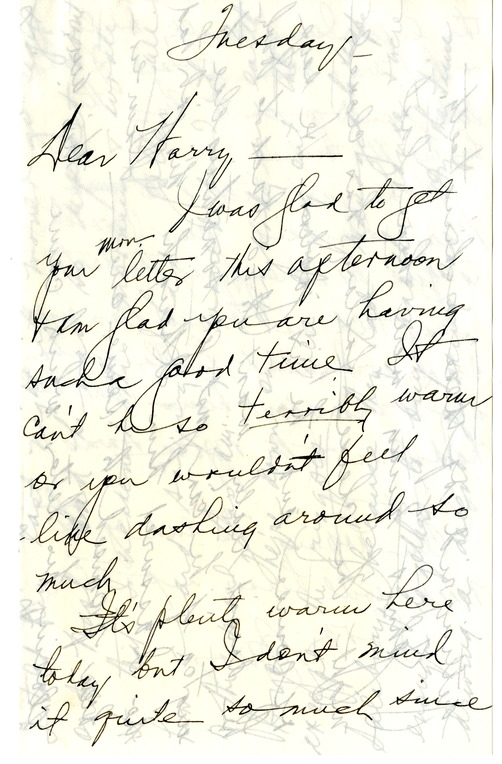 Tuesday —
Dear Harry —
I was glad to get
mon.
your letter this afternoon
& am glad you are having
such a good time It
can't be so terribly warm
or you wouldn't feel
like dashing around so
much
It's plenty warm here
today, but I don't mind
it quite so much since